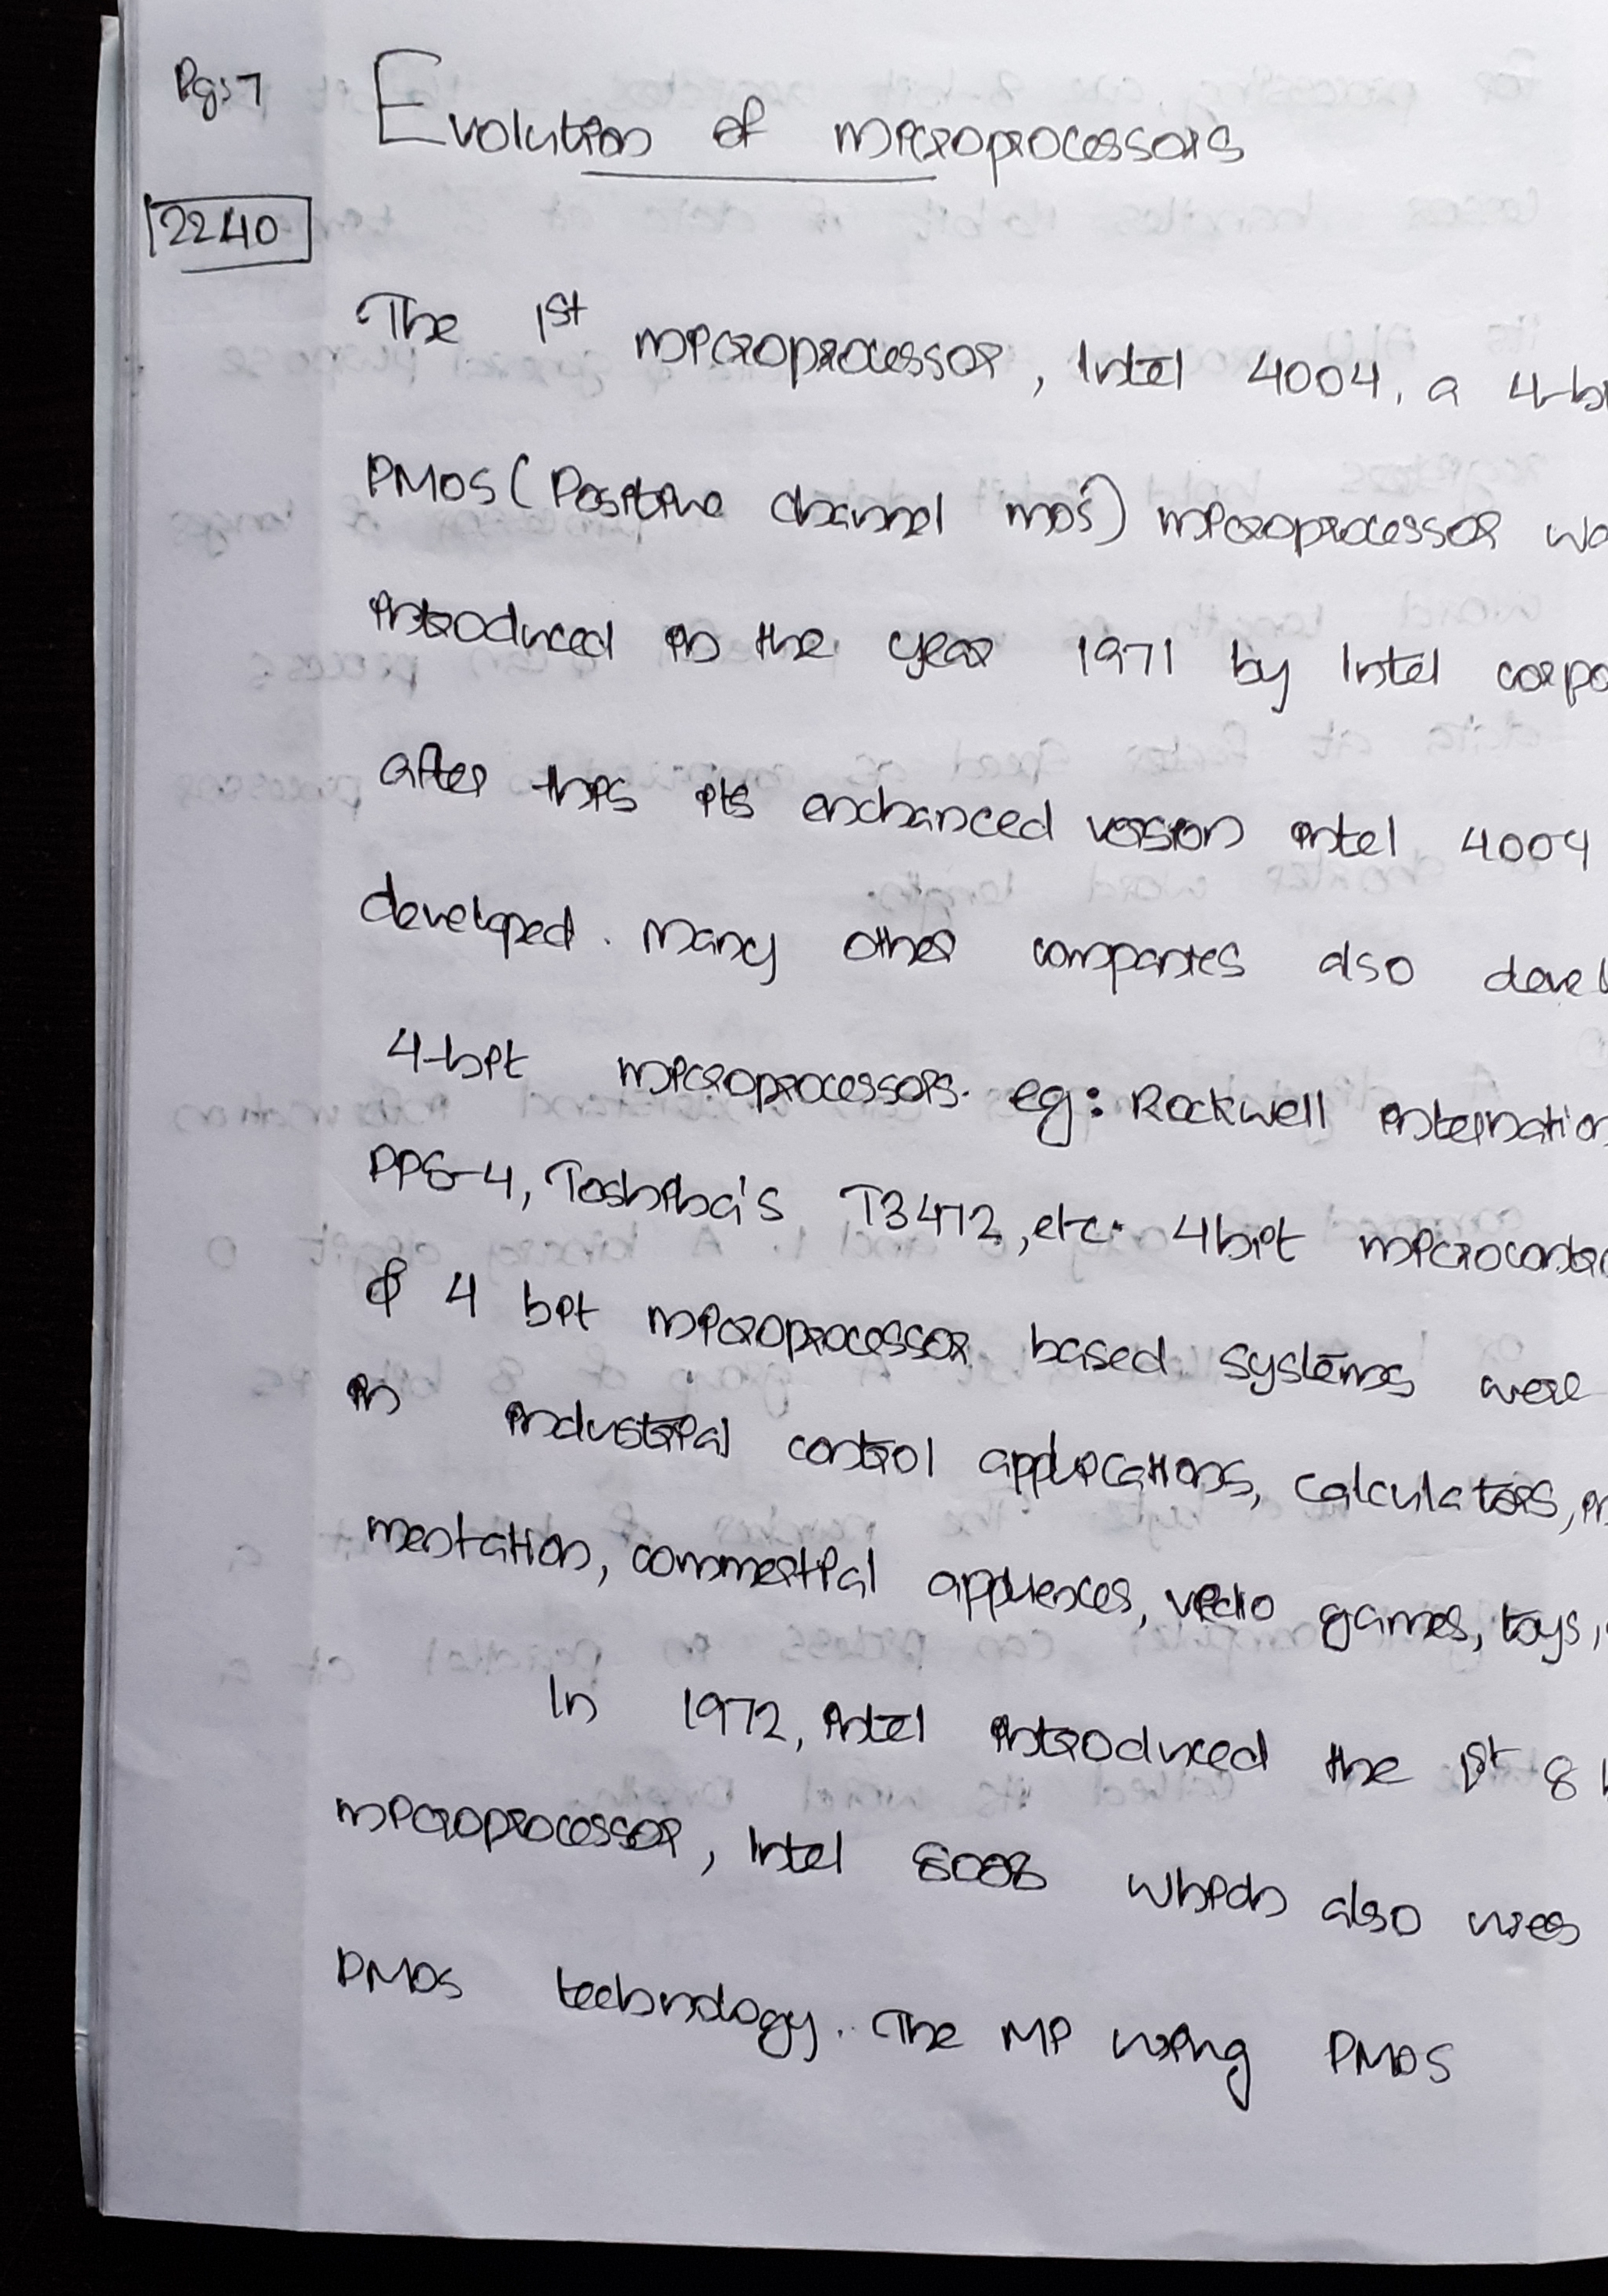 Pg:7
Evolution of microprocessors
2240
The 1st microprocessor, Intel 4004, a 4-bi
PMOS (Positive channel mos) microprocessor wa
introduced in the year 1971 by Intel corpo
after this its enchanced version intel 4004
developed. Many other companies also devel
4-bit microprocessors. eg: Rockwell internation
PPS-4, Toshiba's T3472, etc. 4bit microcontro
& 4 bit microprocessor based systems were
in industrial control applications, calculators, in
mentation, commertial appliences, vedio games, toys,
In 1972, intel introduced the 1st 8 b
microprocessor, Intel 8008 which also uses
PMOS technology. The MP using PMOS